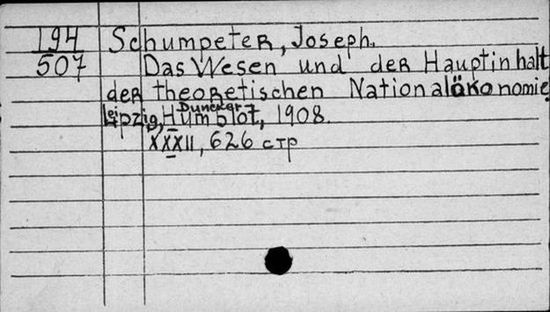 194 Schumpeter, Joseph.
507 Das Wesen und der Hauptinhalt
der theoretischen Nationalökonomie
Leipzig, Duncker
Humblot, 1908.
XXXII, 626 стр